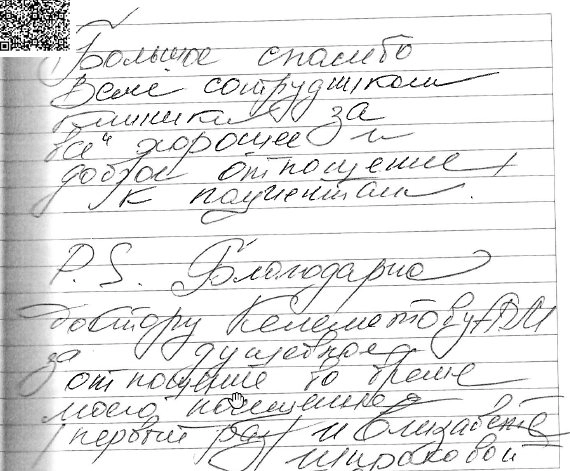 Большое спасибо
Всем сотрудникам
клиники за
хорошее и
доброе отношение
к пациентам.
P.S. Благодарю
доктору
за душевное
отношение во время
моего посещения
первый раз и Елизавете
Широковой